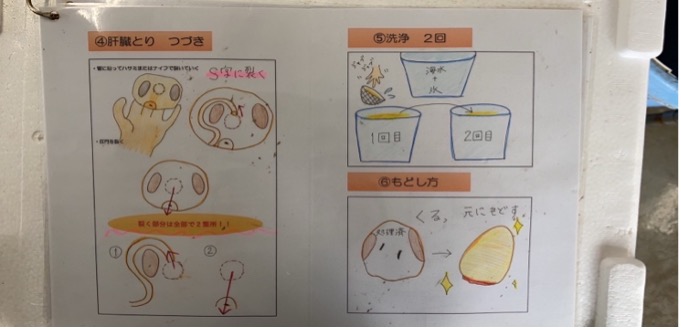 ④肝臓とり つづき
S字に裂く
裂く部分は全部で2箇所!!
①
②
⑤洗浄 2回
海水
+
氷
1回目
2回目
⑥もどし方
くるっ、元にもどす。
処理済